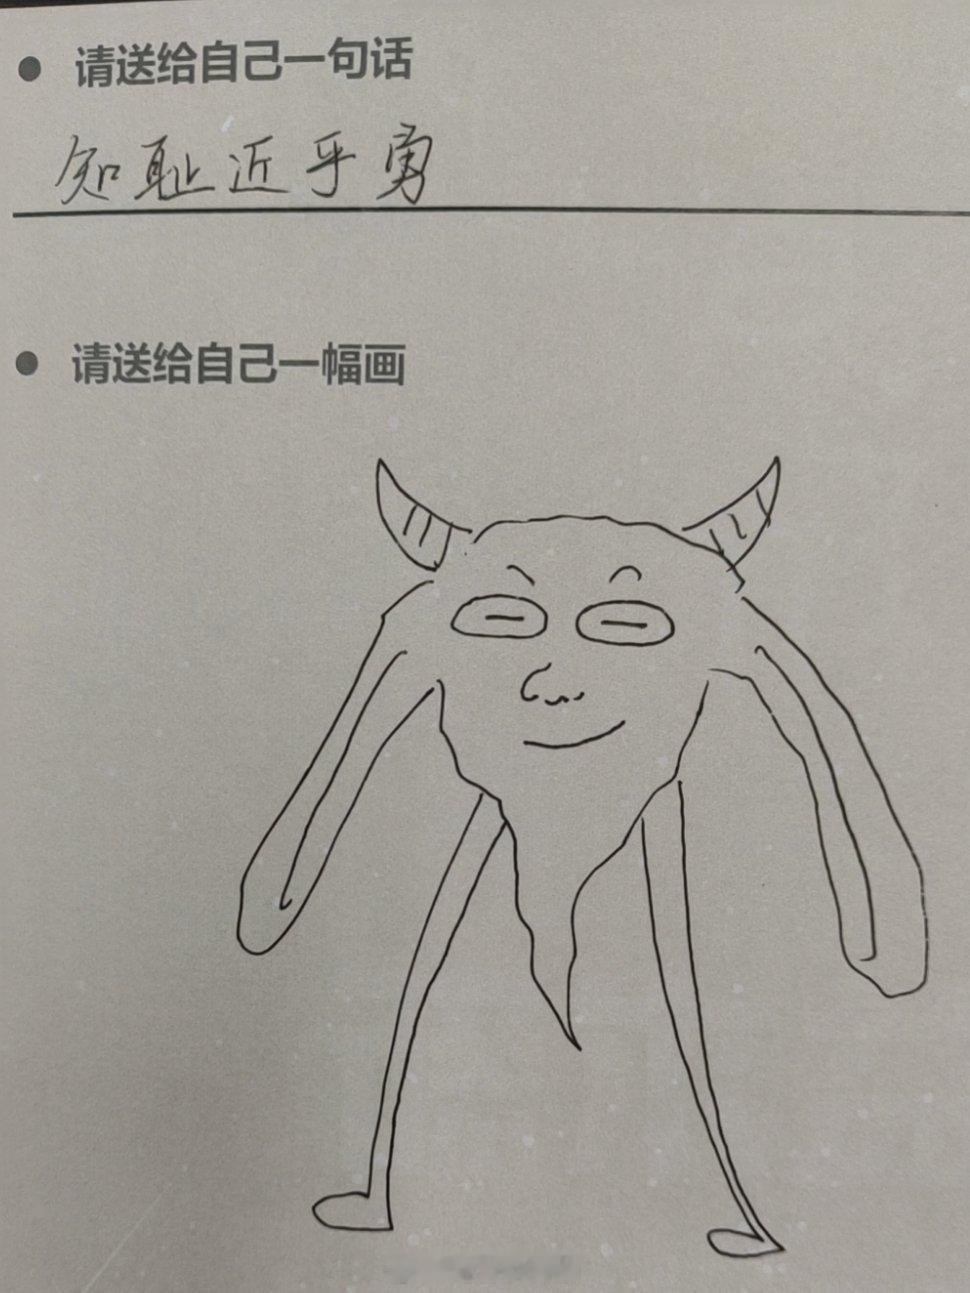 ● 请送给自己一句话
知耻近乎勇
● 请送给自己一幅画